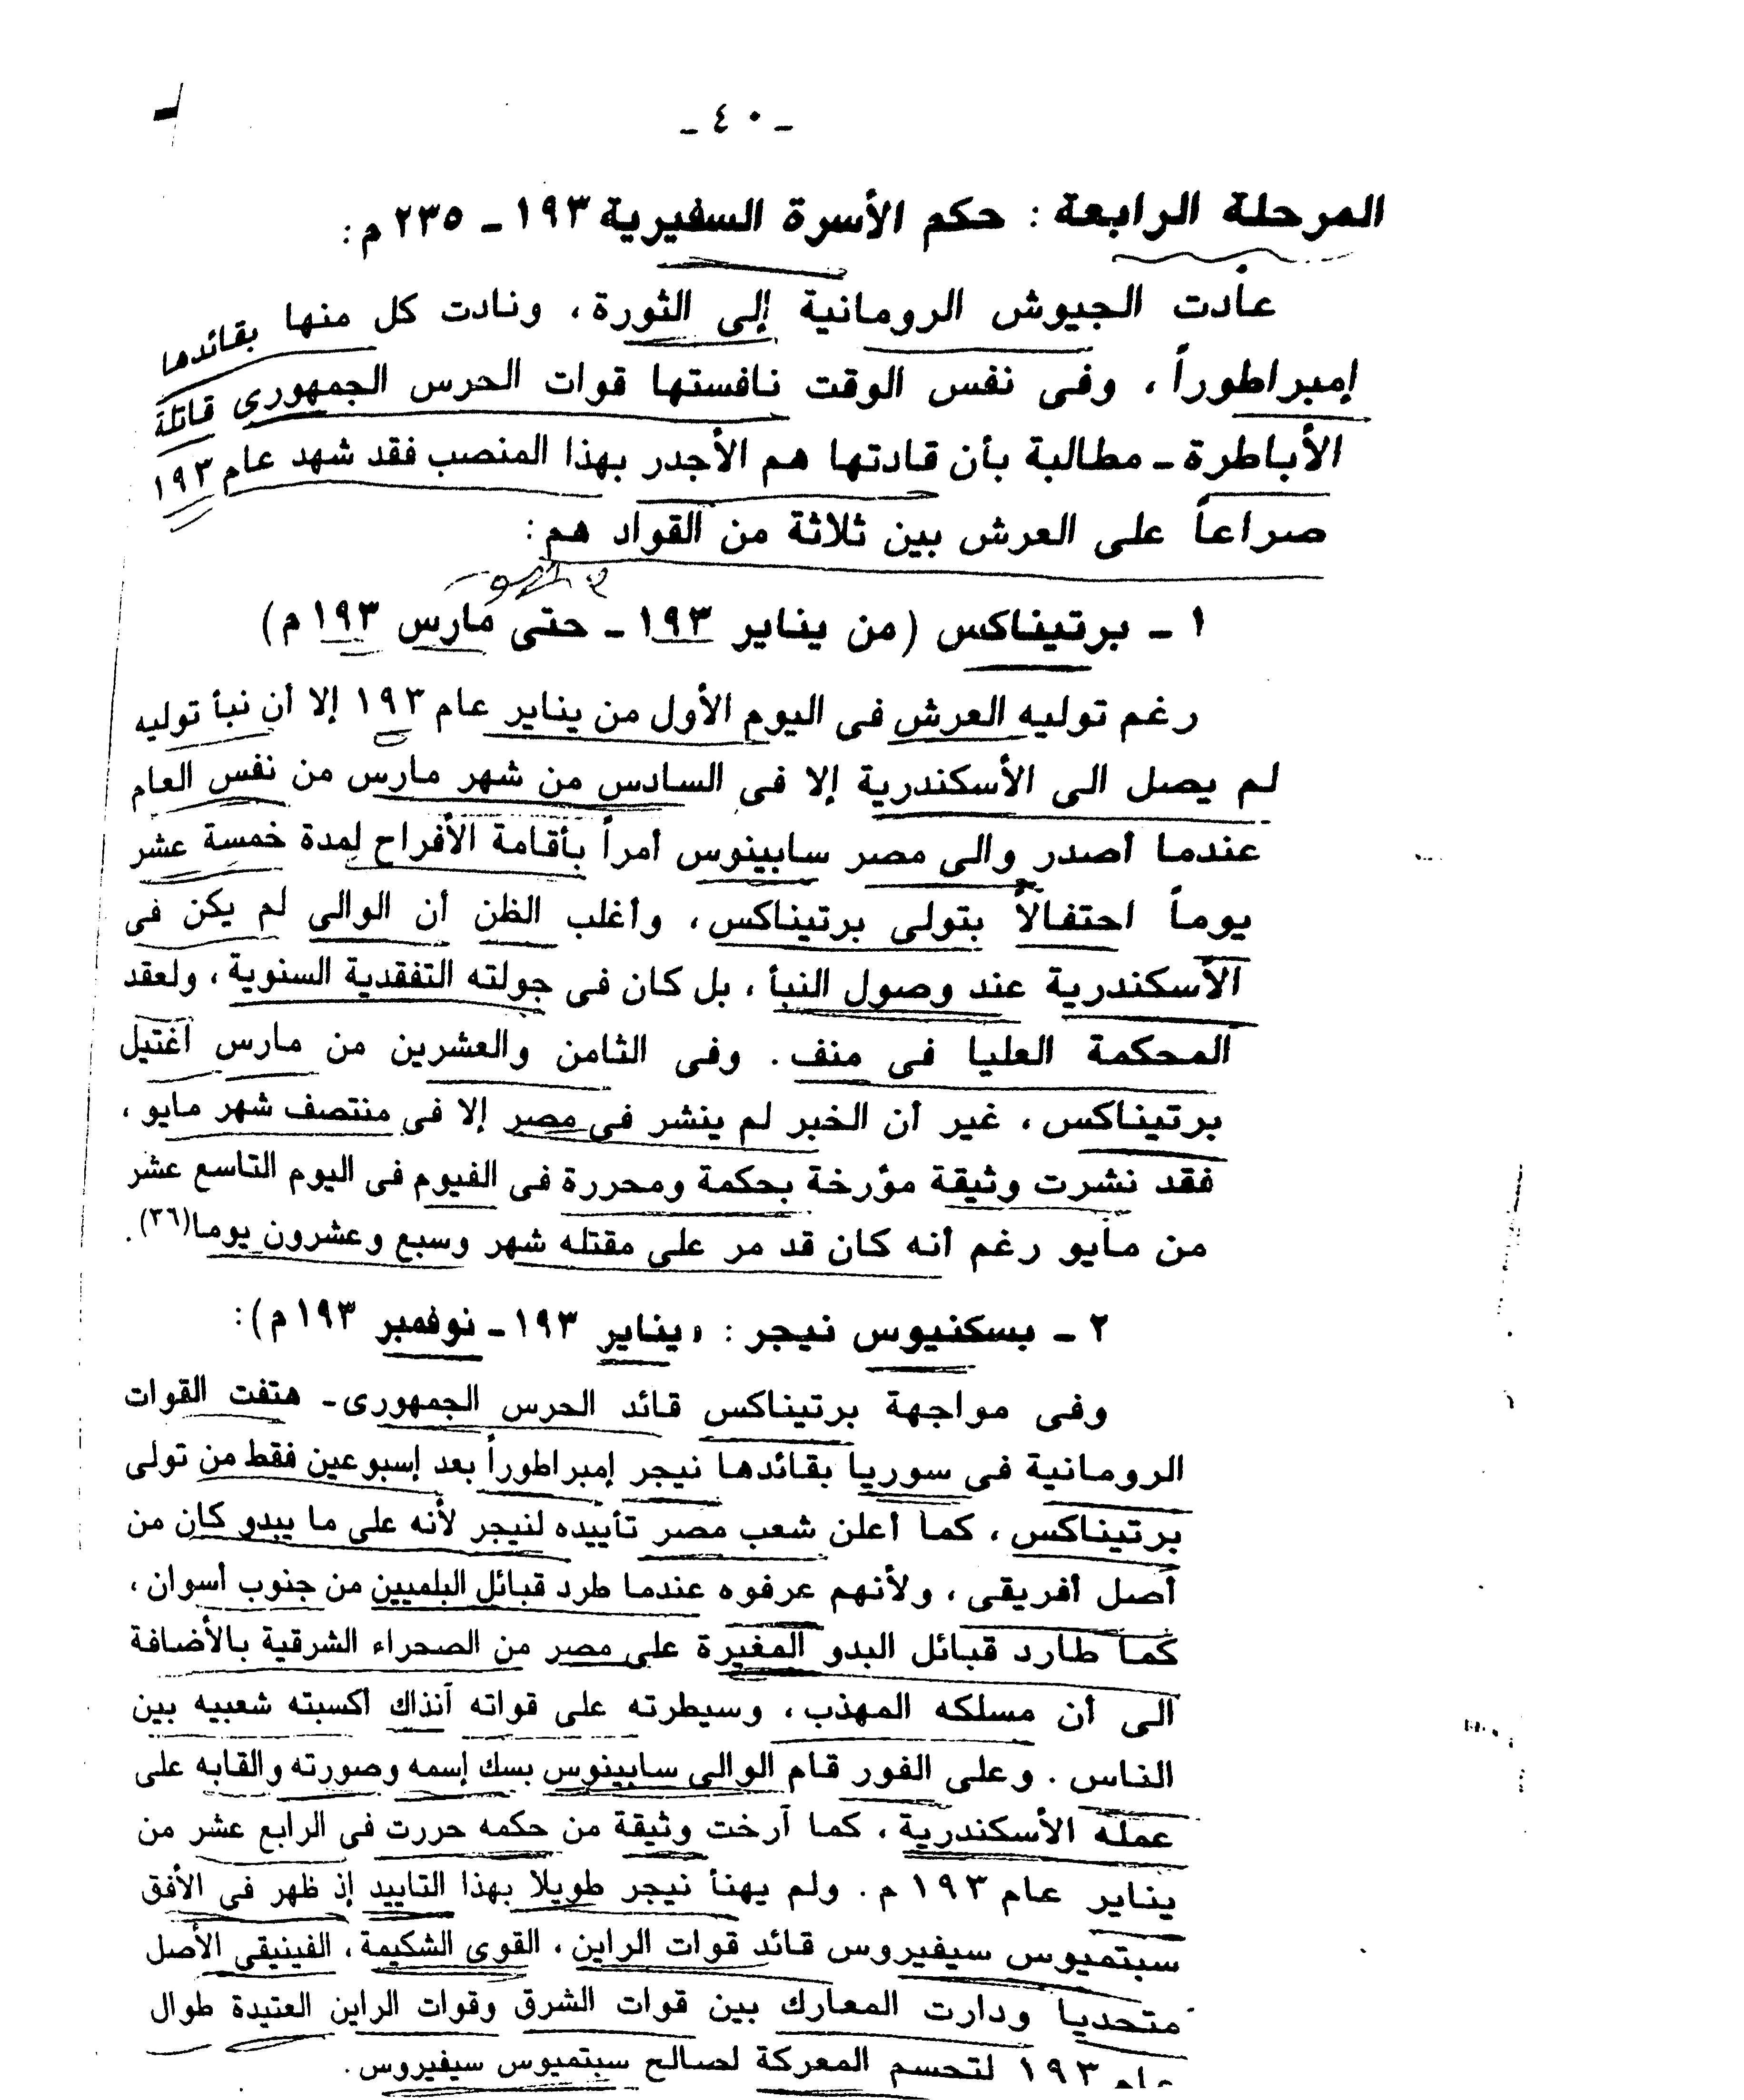 - ٤٠ -
المرحلة الرابعة : حكم الأسرة السفيرية ١٩٣ - ٢٣٥ م :
عادت الجيوش الرومانية إلى الثورة ، ونادت كل منها بقائدها
إمبراطوراً ، وفى نفس الوقت نافستها قوات الحرس الجمهورى قاتلة
الأباطرة - مطالبة بأن قادتها هم الأجدر بهذا المنصب فقد شهد عام ١٩٣
صراعاً على العرش بين ثلاثة من القواد هم :
١ - برتيناكس (من يناير ١٩٣ - حتى مارس ١٩٣ م)
رغم توليه العرش فى اليوم الأول من يناير عام ١٩٣ إلا أن نبأ توليه
لم يصل الى الأسكندرية إلا فى السادس من شهر مارس من نفس العام
عندما أصدر والى مصر سابينوس أمراً بأقامة الأفراح لمدة خمسة عشر
يوماً احتفالاً بتولى برتيناكس ، وأغلب الظن أن الوالى لم يكن فى
الأسكندرية عند وصول النبأ ، بل كان فى جولته التفقدية السنوية ، ولعقد
المحكمة العليا فى منف . وفى الثامن والعشرين من مارس أغتيل
برتيناكس ، غير أن الخبر لم ينشر فى مصر إلا فى منتصف شهر مايو ،
فقد نشرت وثيقة مؤرخة بحكمة ومحررة فى الفيوم فى اليوم التاسع عشر
من مايو رغم أنه كان قد مر على مقتله شهر وسبع وعشرون يوما(٣٦) .
٢ - بسكنيوس نيجر : «يناير ١٩٣ - نوفمبر ١٩٣ م) :
وفى مواجهة برتيناكس قائد الحرس الجمهورى - هتفت القوات
الرومانية فى سوريا بقائدها نيجر إمبراطوراً بعد إسبوعين فقط من تولى
برتيناكس ، كما أعلن شعب مصر تأييده لنيجر لأنه على ما يبدو كان من
أصل أفريقى ، ولأنهم عرفوه عندما طرد قبائل البلميين من جنوب أسوان ،
كما طارد قبائل البدو المغيرة على مصر من الصحراء الشرقية بالأضافة
الى أن مسلكه المهذب ، وسيطرته على قواته آنذاك أكسبته شعبيه بين
الناس . وعلى الفور قام الوالى سابينوس بسك إسمه وصورته والقابه على
عمله الأسكندرية ، كما آرخت وثيقة من حكمه حررت فى الرابع عشر من
يناير عام ١٩٣ م . ولم يهنأ نيجر طويلا بهذا التاييد إذ ظهر فى الأفق
سبتميوس سيفيروس قائد قوات الراين ، القوى الشكيمة ، الفينيقى الأصل
متحديا ودارت المعارك بين قوات الشرق وقوات الراين العتيدة طوال
عام ١٩٣ لتحسم المعركة لصالح سبتميوس سيفيروس .